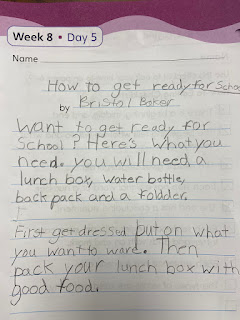 Week 8 • Day 5
Name
How to get ready for School
by Bristol Boker
Want to get ready for
School? Here's what you
need. you will need, a
lunch box, water bottle,
back pack and a foldder.
First get dressed put on what
you want to ware. Then
pack your lunch box with
good food.